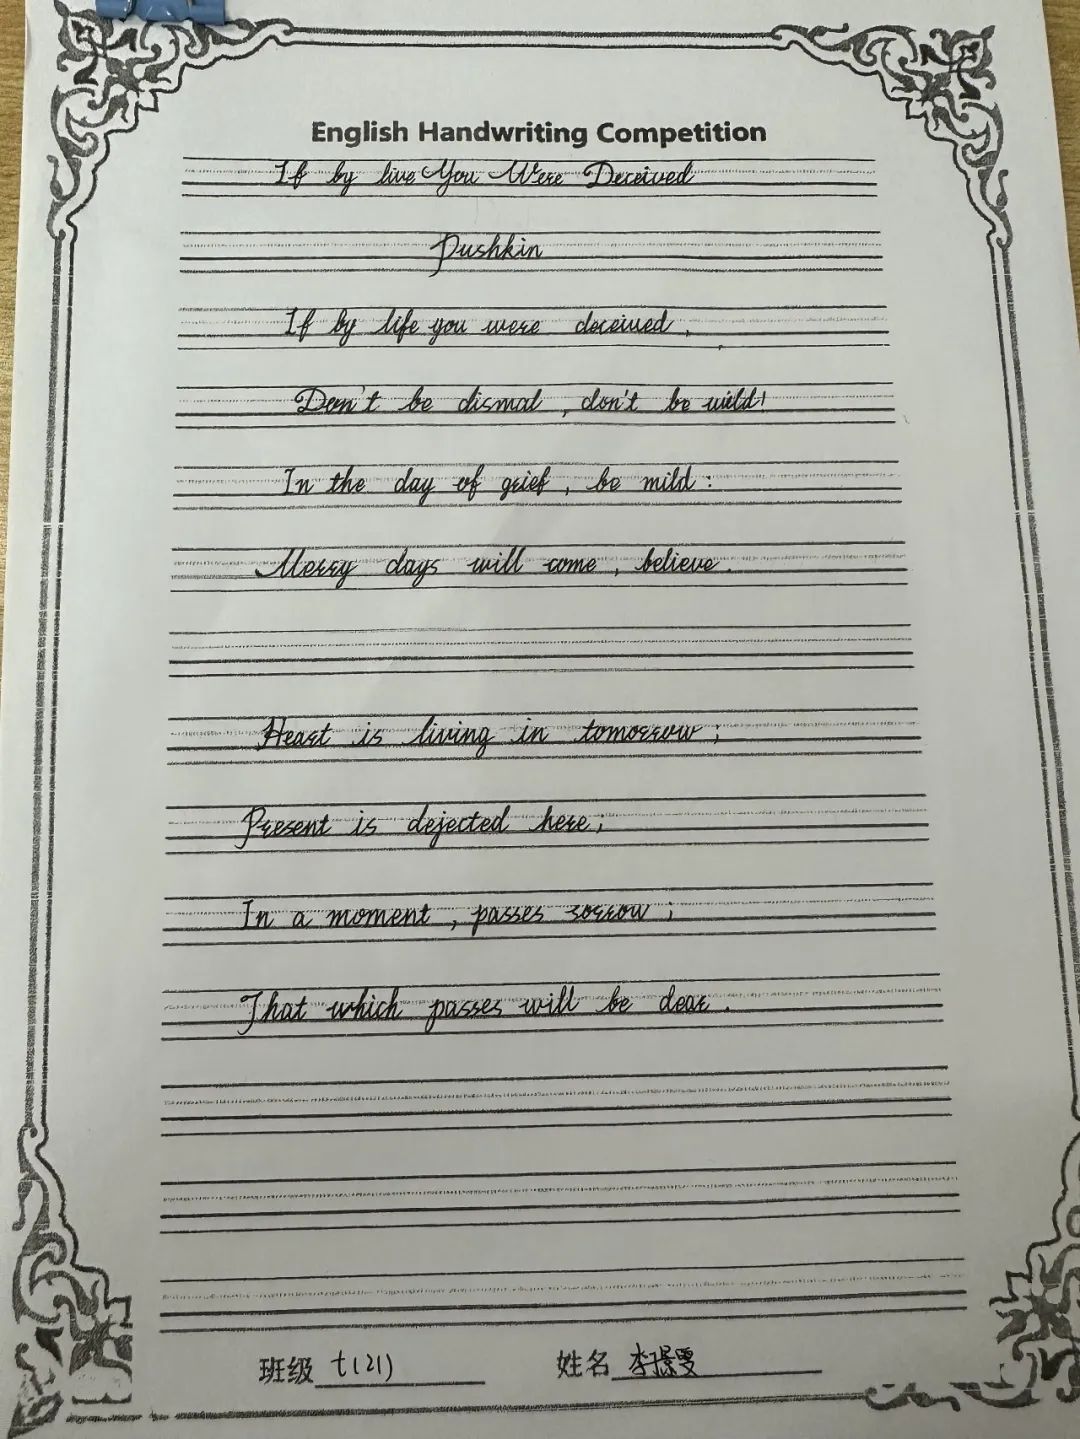 English Handwriting Competition
If by live You Were Deceived
Pushkin
If by life you were deceived,
Don't be dismal, don't be wild!
In the day of grief, be mild:
Merry days will come, believe.
Heart is living in tomorrow;
Present is dejected here;
In a moment, passes sorrow;
That which passes will be dear.
班级 七(21) 姓名 李璟雯